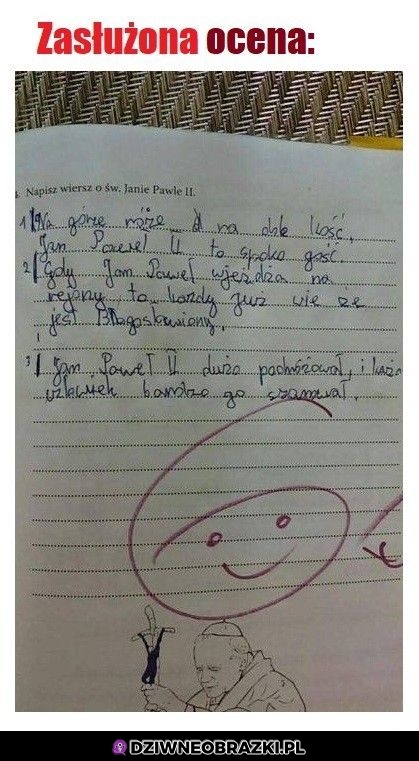 Zasłużona ocena:
. Napisz wiersz o św. Janie Pawle II.
1/ Na górze róże a na dole kość,
Jan Paweł II to spoko gość.
2/ Gdy Jan Paweł wjeżdża na
rejony to każdy już wie że
jest Błogosławiony.
3/ Jan Paweł II dużo podróżował, i
człowiek bardzo go szanował.
DZIWNEOBRAZKI.PL